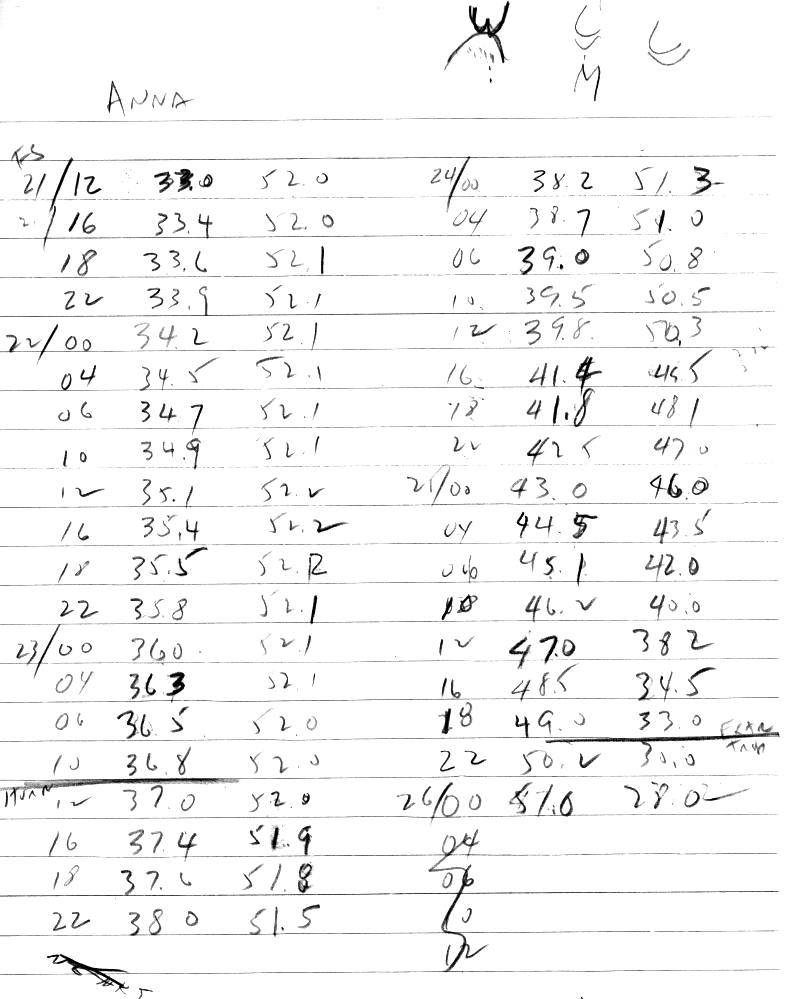 ANNA
M
21/12 33.0 52.0
21/16 33.4 52.0
18 33.6 52.1
22 33.9 52.1
22/00 34.2 52.1
04 34.5 52.1
06 34.7 52.1
10 34.9 52.1
12 35.1 52.2
16 35.4 52.2
18 35.5 52.2
22 35.8 52.1
23/00 36.0 52.1
04 36.3 52.1
06 36.5 52.0
10 36.8 52.0
HURR
12 37.0 52.0
16 37.4 51.9
18 37.6 51.8
22 38.0 51.5
24/00 38.2 51.3
04 38.7 51.0
06 39.0 50.8
10 39.5 50.5
12 39.8 50.3
16 41.4 48.5
18 41.8 48.1
22 42.5 47.0
25/00 43.0 46.0
04 44.5 43.5
06 45.1 42.0
10 46.2 40.0
12 47.0 38.2
16 48.5 34.5
18 49.0 33.0
EXTRATROP
22 50.2 30.0
26/00 51.0 28.0
04
06
10
12